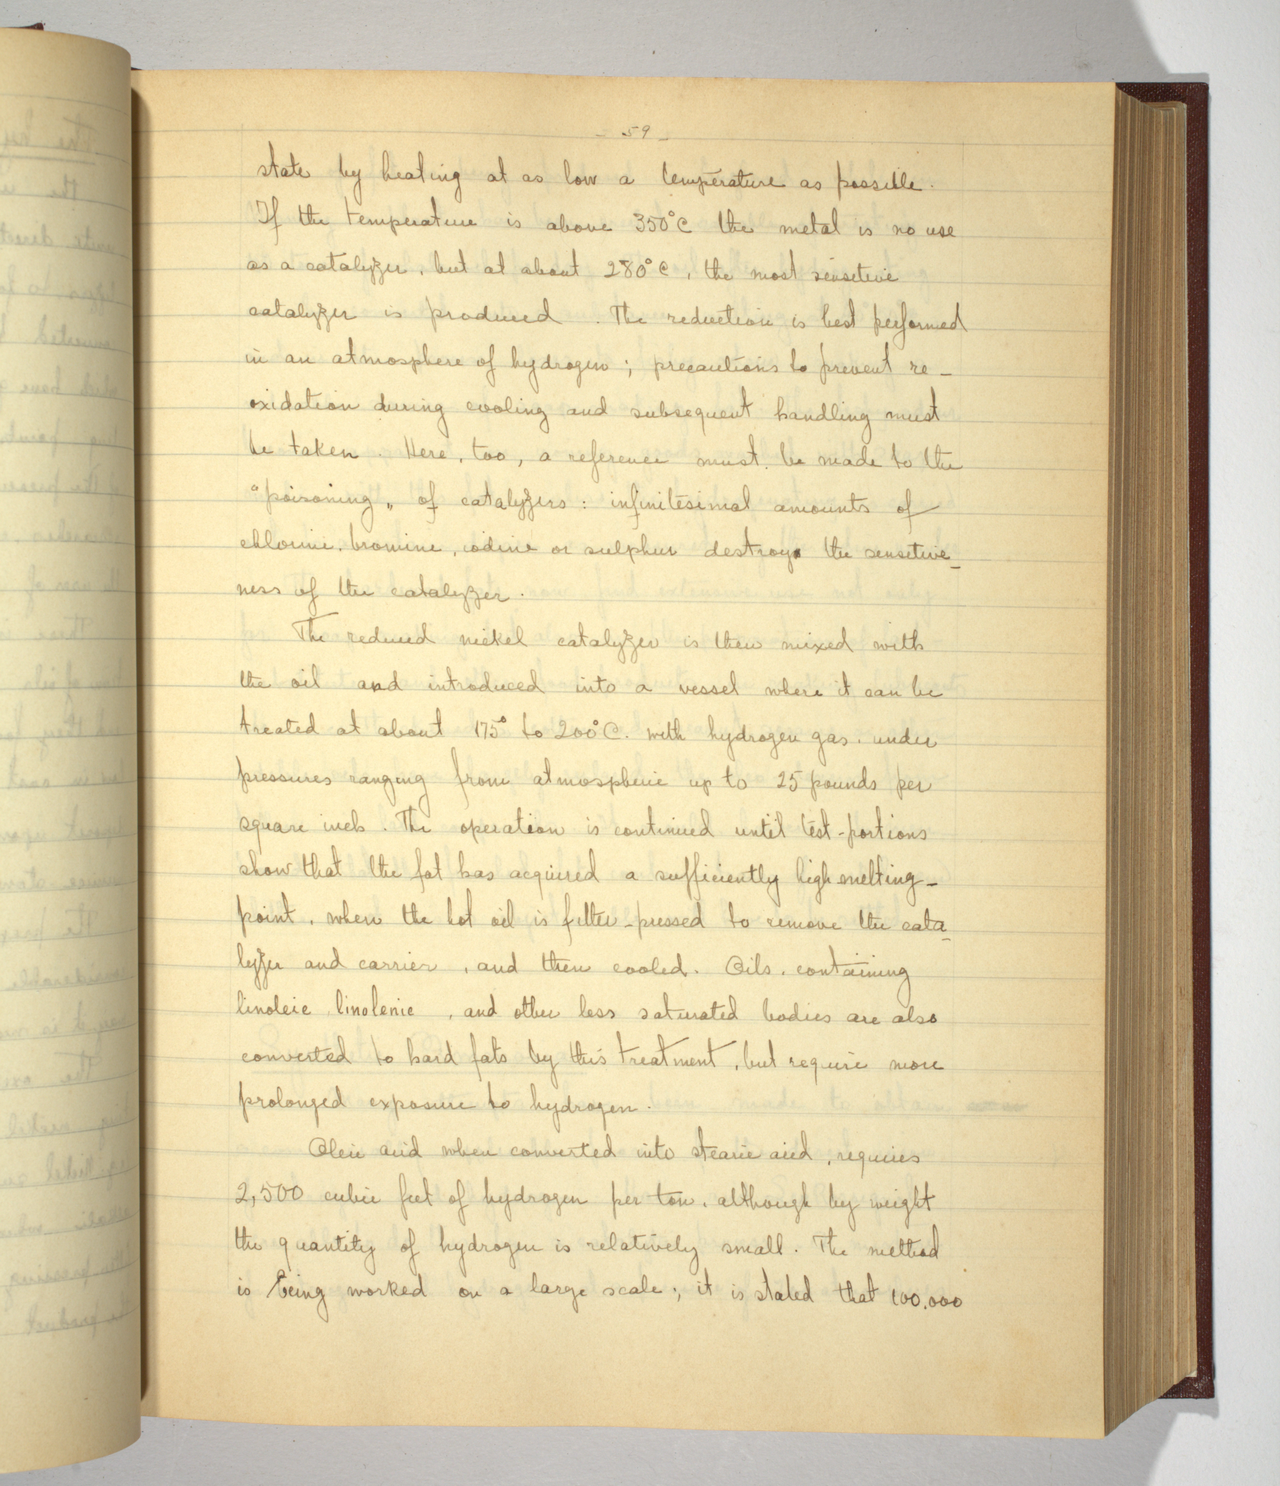 - 59 -
state by heating at as low a temperature as possible.
If the temperature is above 350°C the metal is no use
as a catalyzer, but at about 280°C, the most sensitive
catalyzer is produced. The reduction is best performed
in an atmosphere of hydrogen; precautions to prevent re-
oxidation during cooling and subsequent handling must
be taken. Here, too, a reference must be made to the
"poisoning„ of catalyzers: infinitesimal amounts of
chlorine, bromine, iodine or sulphur destroy the sensitive-
ness of the catalyzer.
The reduced nickel catalyzer is then mixed with
the oil and introduced into a vessel where it can be
treated at about 175° to 200°C. with hydrogen gas, under
pressures ranging from atmospheric up to 25 pounds per
square inch. The operation is continued until test-portions
show that the fat has acquired a sufficiently high melting-
point, when the hot oil is filter-pressed to remove the cata-
lyzer and carrier, and then cooled. Oils, containing
linoleic linolenic, and other less saturated bodies are also
converted to hard fats by this treatment, but require more
prolonged exposure to hydrogen.
Oleic acid when converted into stearic acid, requires
2,500 cubic feet of hydrogen per ton, although by weight
the quantity of hydrogen is relatively small. The method
is being worked on a large scale; it is stated that 100,000